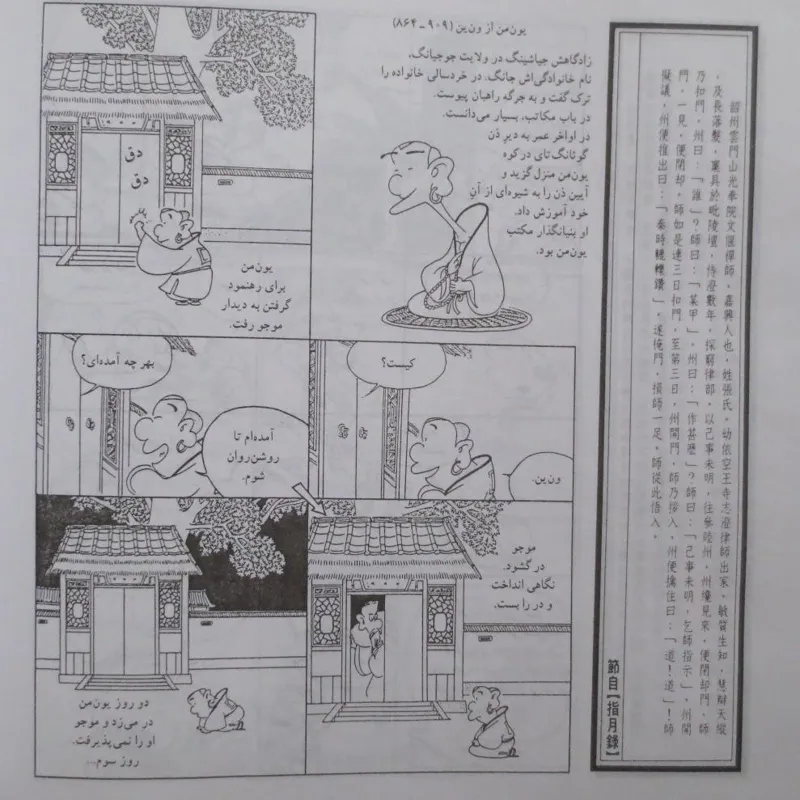 韶州雲門山光奉院文偃禪師,嘉興人也,姓張氏,幼依空王寺志澄律師出家,敏質生知,慧辯天縱
,及長落髮,稟具於毗陵壇,侍澄數年,探窮律部,以己事未明,往參睦州,州纔見來,便閉却門,師
乃扣門,州曰:「誰」?師曰:「某甲」,州曰:「作甚麼」?師曰:「己事未明,乞師指示」,州開
門,一見,便閉却,師如是連三日扣門,至第三日,州開門,師乃拶入,州便擒住曰:「道!道」!師
擬議,州便推出曰:「秦時轢鑽」,遂掩門,損師一足,師從此悟入。
節自【指月錄】
یون‌من از ون‌ین (۹۰۹ـ۸۶۴)
زادگاهش جیاشینگ در ولایت جوجیانگ،
نام خانوادگی‌اش جانگ. در خردسالی خانواده را
ترک گفت و به جرگه راهبان پیوست.
در باب مکاتب، بسیار می‌دانست.
در اواخر عمر به دیرِ ذن
گوئانگ تای در کوه
یون‌من منزل گزید و
آیین ذن را به شیوه‌ای از آنِ
خود آموزش داد.
او بنیانگذار مکتب
یون‌من بود.
دق
دق
یون‌من
برای رهنمود
گرفتن به دیدار
موجو رفت.
کیست؟
ون‌ین.
بهر چه آمده‌ای؟
آمده‌ام تا
روشن‌روان
شوم.
موجو
در گشود.
نگاهی انداخت
و در را بست.
دو روز یون‌من
در می‌زد و موجو
او را نمی‌پذیرفت.
روز سوم...